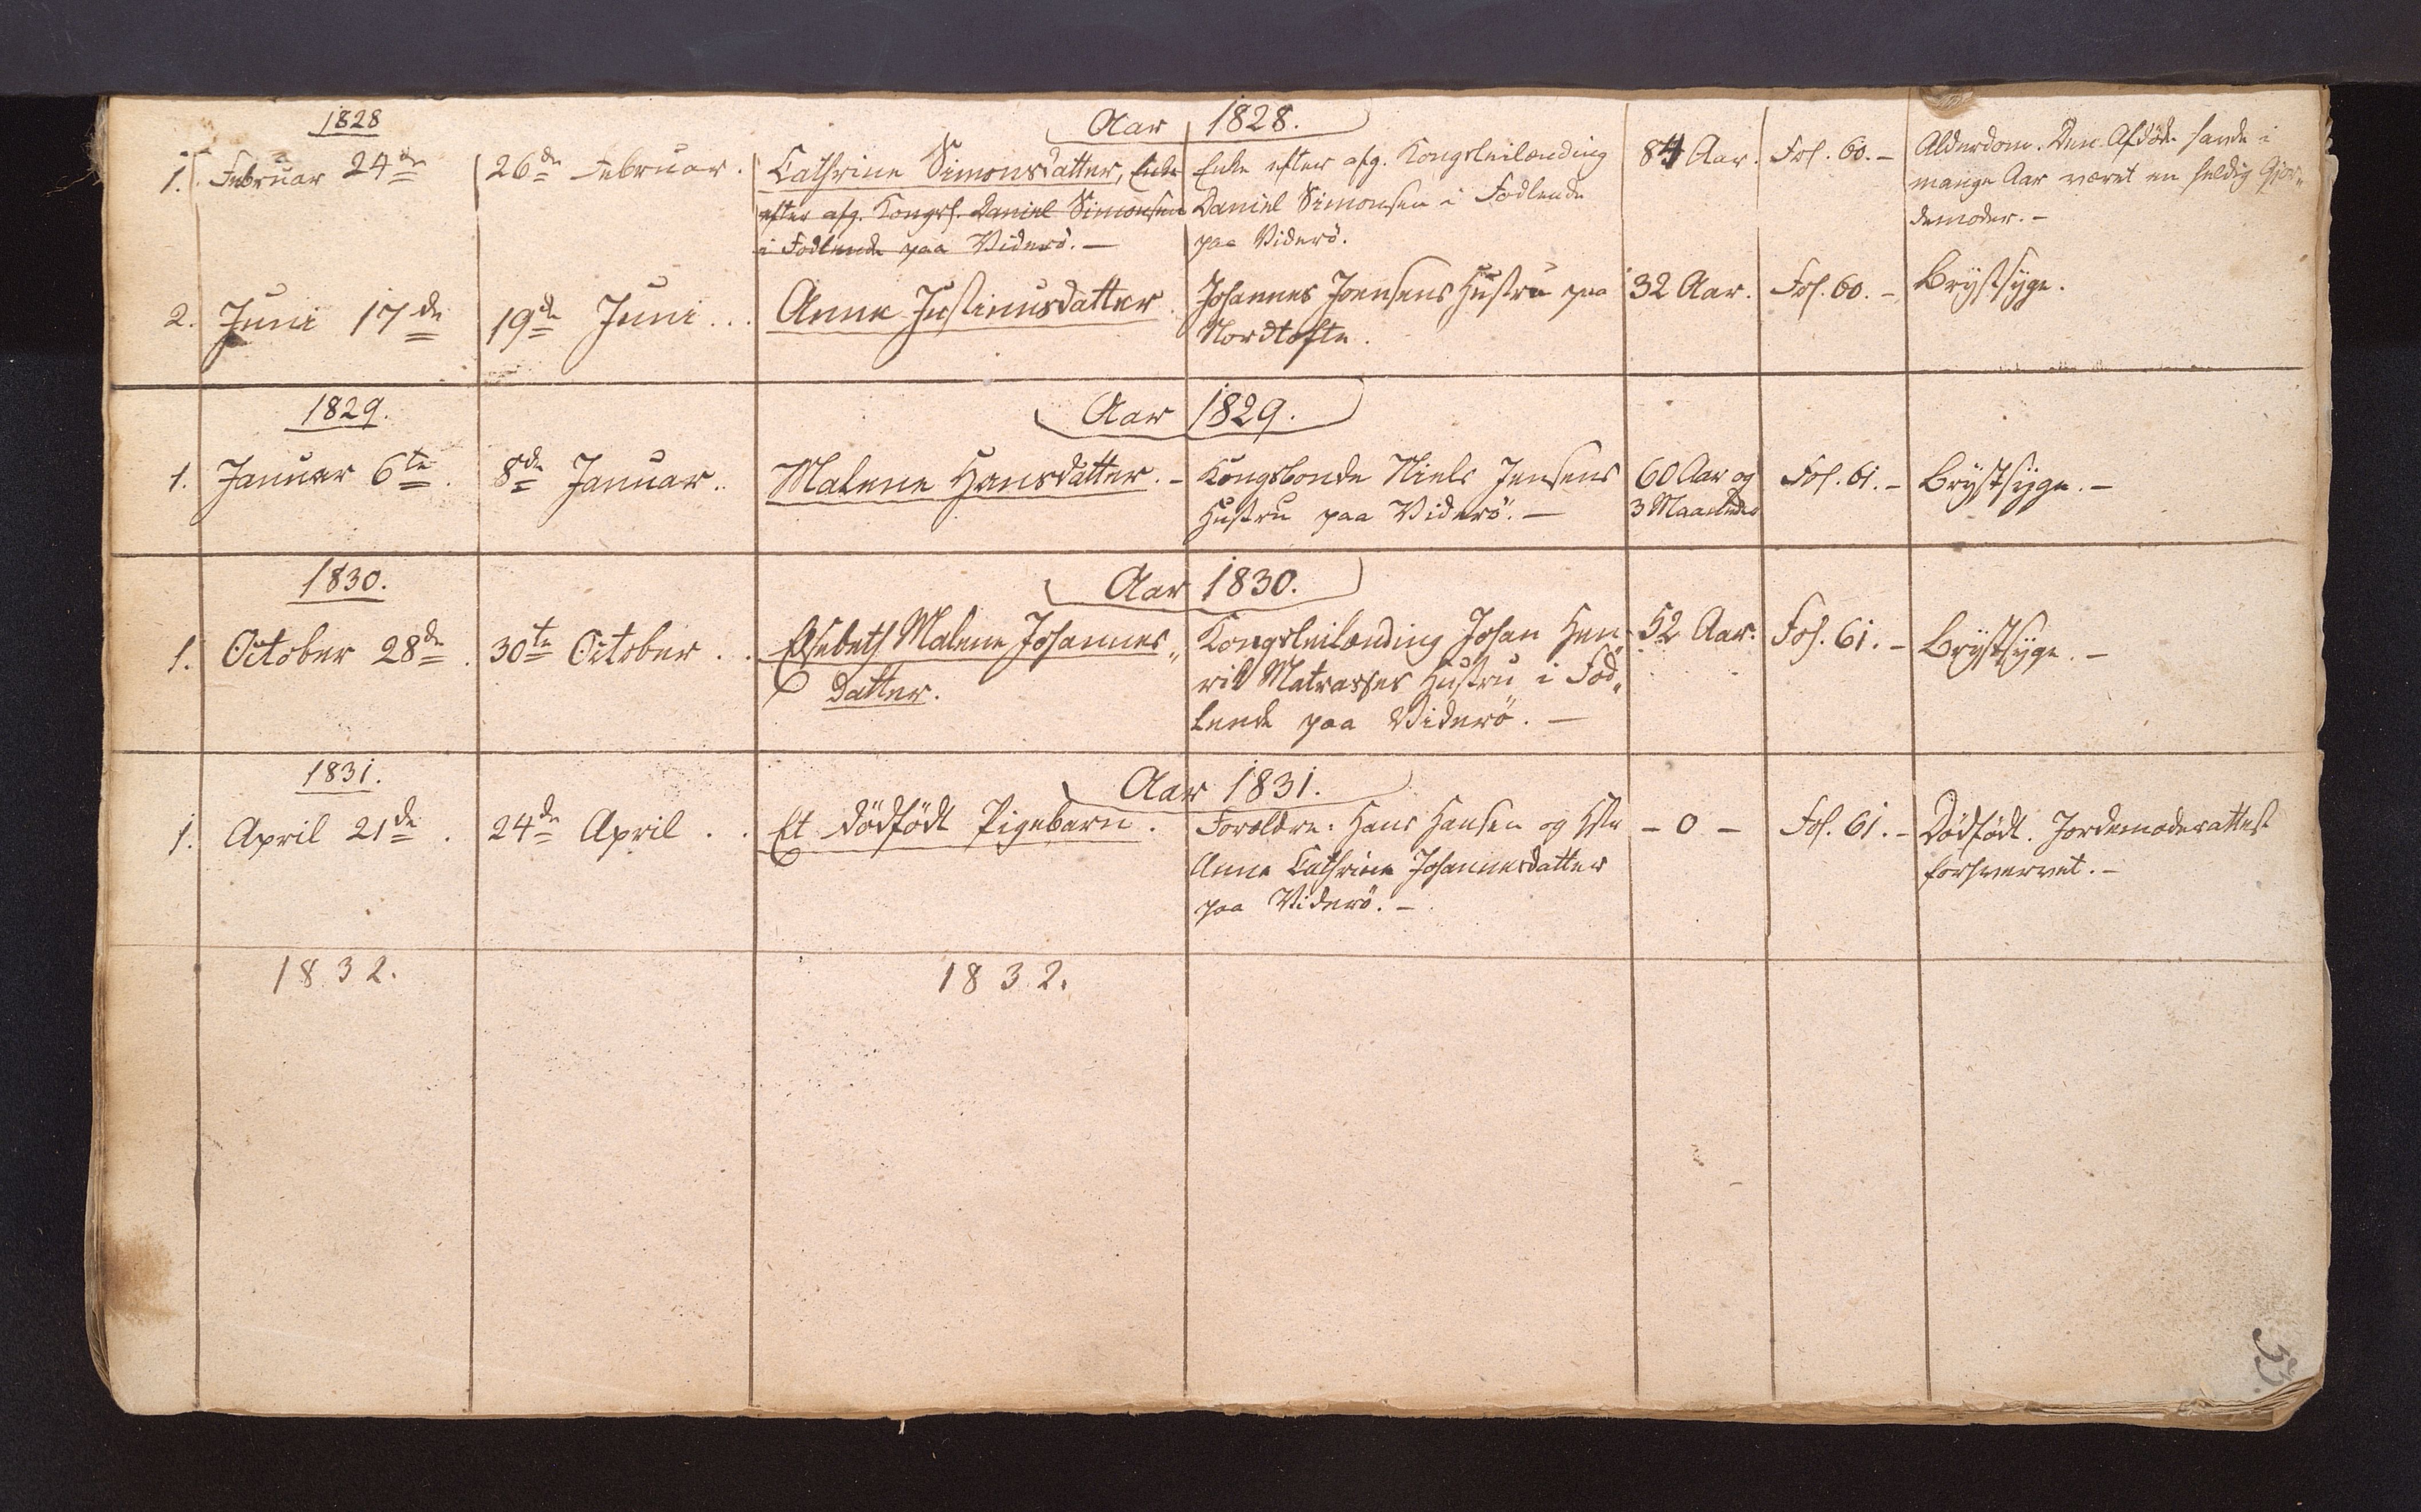 1828
Aar 1828.
1. Februar 24de
26de Februar.
Cathrine Simonsdatter, Enke
efter afg. Kongsf. Daniel Simonsen
i Fodlende paa Viderö. —
Enke efter afg. Kongsleilænding
Daniel Simonsen i Fodlende
paa Viderö.
84 Aar.
Fol. 60. –
Alderdom. Den Afdöde havde i
mange Aar været en heldig Gjor„
demoder. –
2. Juni 17de
19de Juni ...
Anne Justinusdatter
Johannes Joensens Hustru paa
Nordtofte.
32 Aar.
Fol. 60. –
Brystsyge.
1829.
Aar 1829.
1. Januar 6te.
8de Januar..
Malene Hansdatter. –
Kongsbonde Niels Jensens
Hustru paa Viderö. —
60 Aar og
3 Maaneder
Fol. 61. –
Brystsyge. –
1830.
Aar 1830.
1. October 28de.
30te October ..
Elsebeth Malene Johannes„
datter.
Kongsleilænding Johan Hen„
rik Matrasses Hustru i Fod„
lende paa Viderö. —
52 Aar.
Fol. 61. –
Brystsyge. –
1831.
Aar 1831.
1. April 21de.
24de April ..
Et dödfödt Pigebarn.
Forældre: Hans Hansen og Hstr
Anne Cathrine Johannesdatter
paa Viderö. –
– 0 –
Fol. 61. –
Dödfödt. Jordemoderattest
forhvervet. –
1832.
1832.